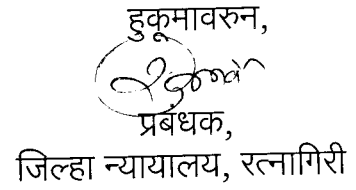 हुकूमावरुन,
प्रबंधक,
जिल्हा न्यायालय, रत्नागिरी